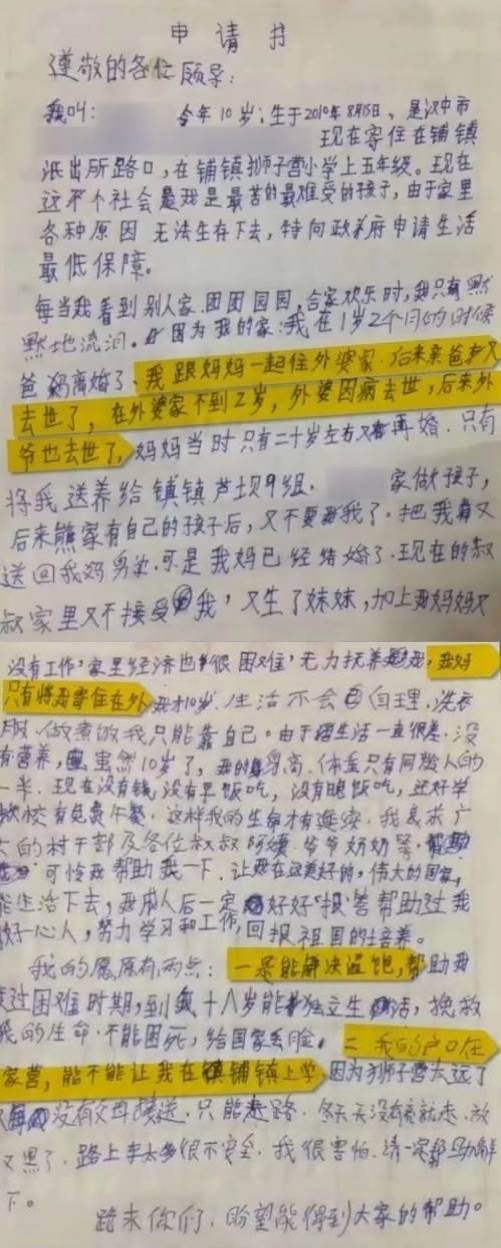 申请书
遵敬的各位领导：
我叫： 今年10岁；生于2010年8月15日、是汉中市
现在家住在铺镇
派出所路口，在铺镇狮子营小学上五年级。现在
这个社会是我是最苦的最难受的孩子，由于家里
各种原因 无法生存下去，特向政府申请生活
最低保障。
每当我看到别人家 团团园园，合家欢乐时，我只有默
默地流泪。因为我的家：我在1岁2个月的时候
爸妈离婚了、我跟妈妈一起住外婆家．后来亲爸又
去世了，在外婆家不到2岁，外婆因病去世，后来外
爷也去世了，妈妈当时只有二十岁左右又再婚．只有
将我送养给镇镇芦坝9组． 家做孩子，
后来熊家有自己的孩子后，又不要我了．把我又
送回我妈身边．可是我妈已经结婚了．现在的叔
叔家里又不接受我，又生了妹妹，加上我妈妈又
没有工作，家里经济也很困难，无力抚养我，我妈
只有将我寄住在外 我才10岁．生活不会自理．洗衣
服、做煮饭我只能靠自己。由于生活一直很差．没
有营养， 虽然10岁了，我的身高．体重只有同龄人的
一半．现在没有钱 没有早饭吃，没有晚饭吃，还好学
校有免费午餐．这样我的生命才有延续．我恳求广
大的村干部及各位叔叔阿姨、爷爷奶奶等．帮助
可怜我帮助我一下．让我在这美好的，伟大的国家，
能生活下去，我成人后一定好好"报"答帮助过我
好心人，努力学习和工作，回报祖国的培养。
我的愿原有两点：一是能解决温饱，帮助我
度过困难时期，到我十八岁能独立生活，挽救
我的生命．不能困死，给国家丢脸。二 我的户口在
家营，能不能让我在铺镇上学，因为狮子营太远了
没有父母接送．只能走路．冬天天没有亮就走．放
又黑了．路上车太多很不安全．我很害怕．请一定帮助解
下。
跪求你们，盼望能得到大家的帮助。